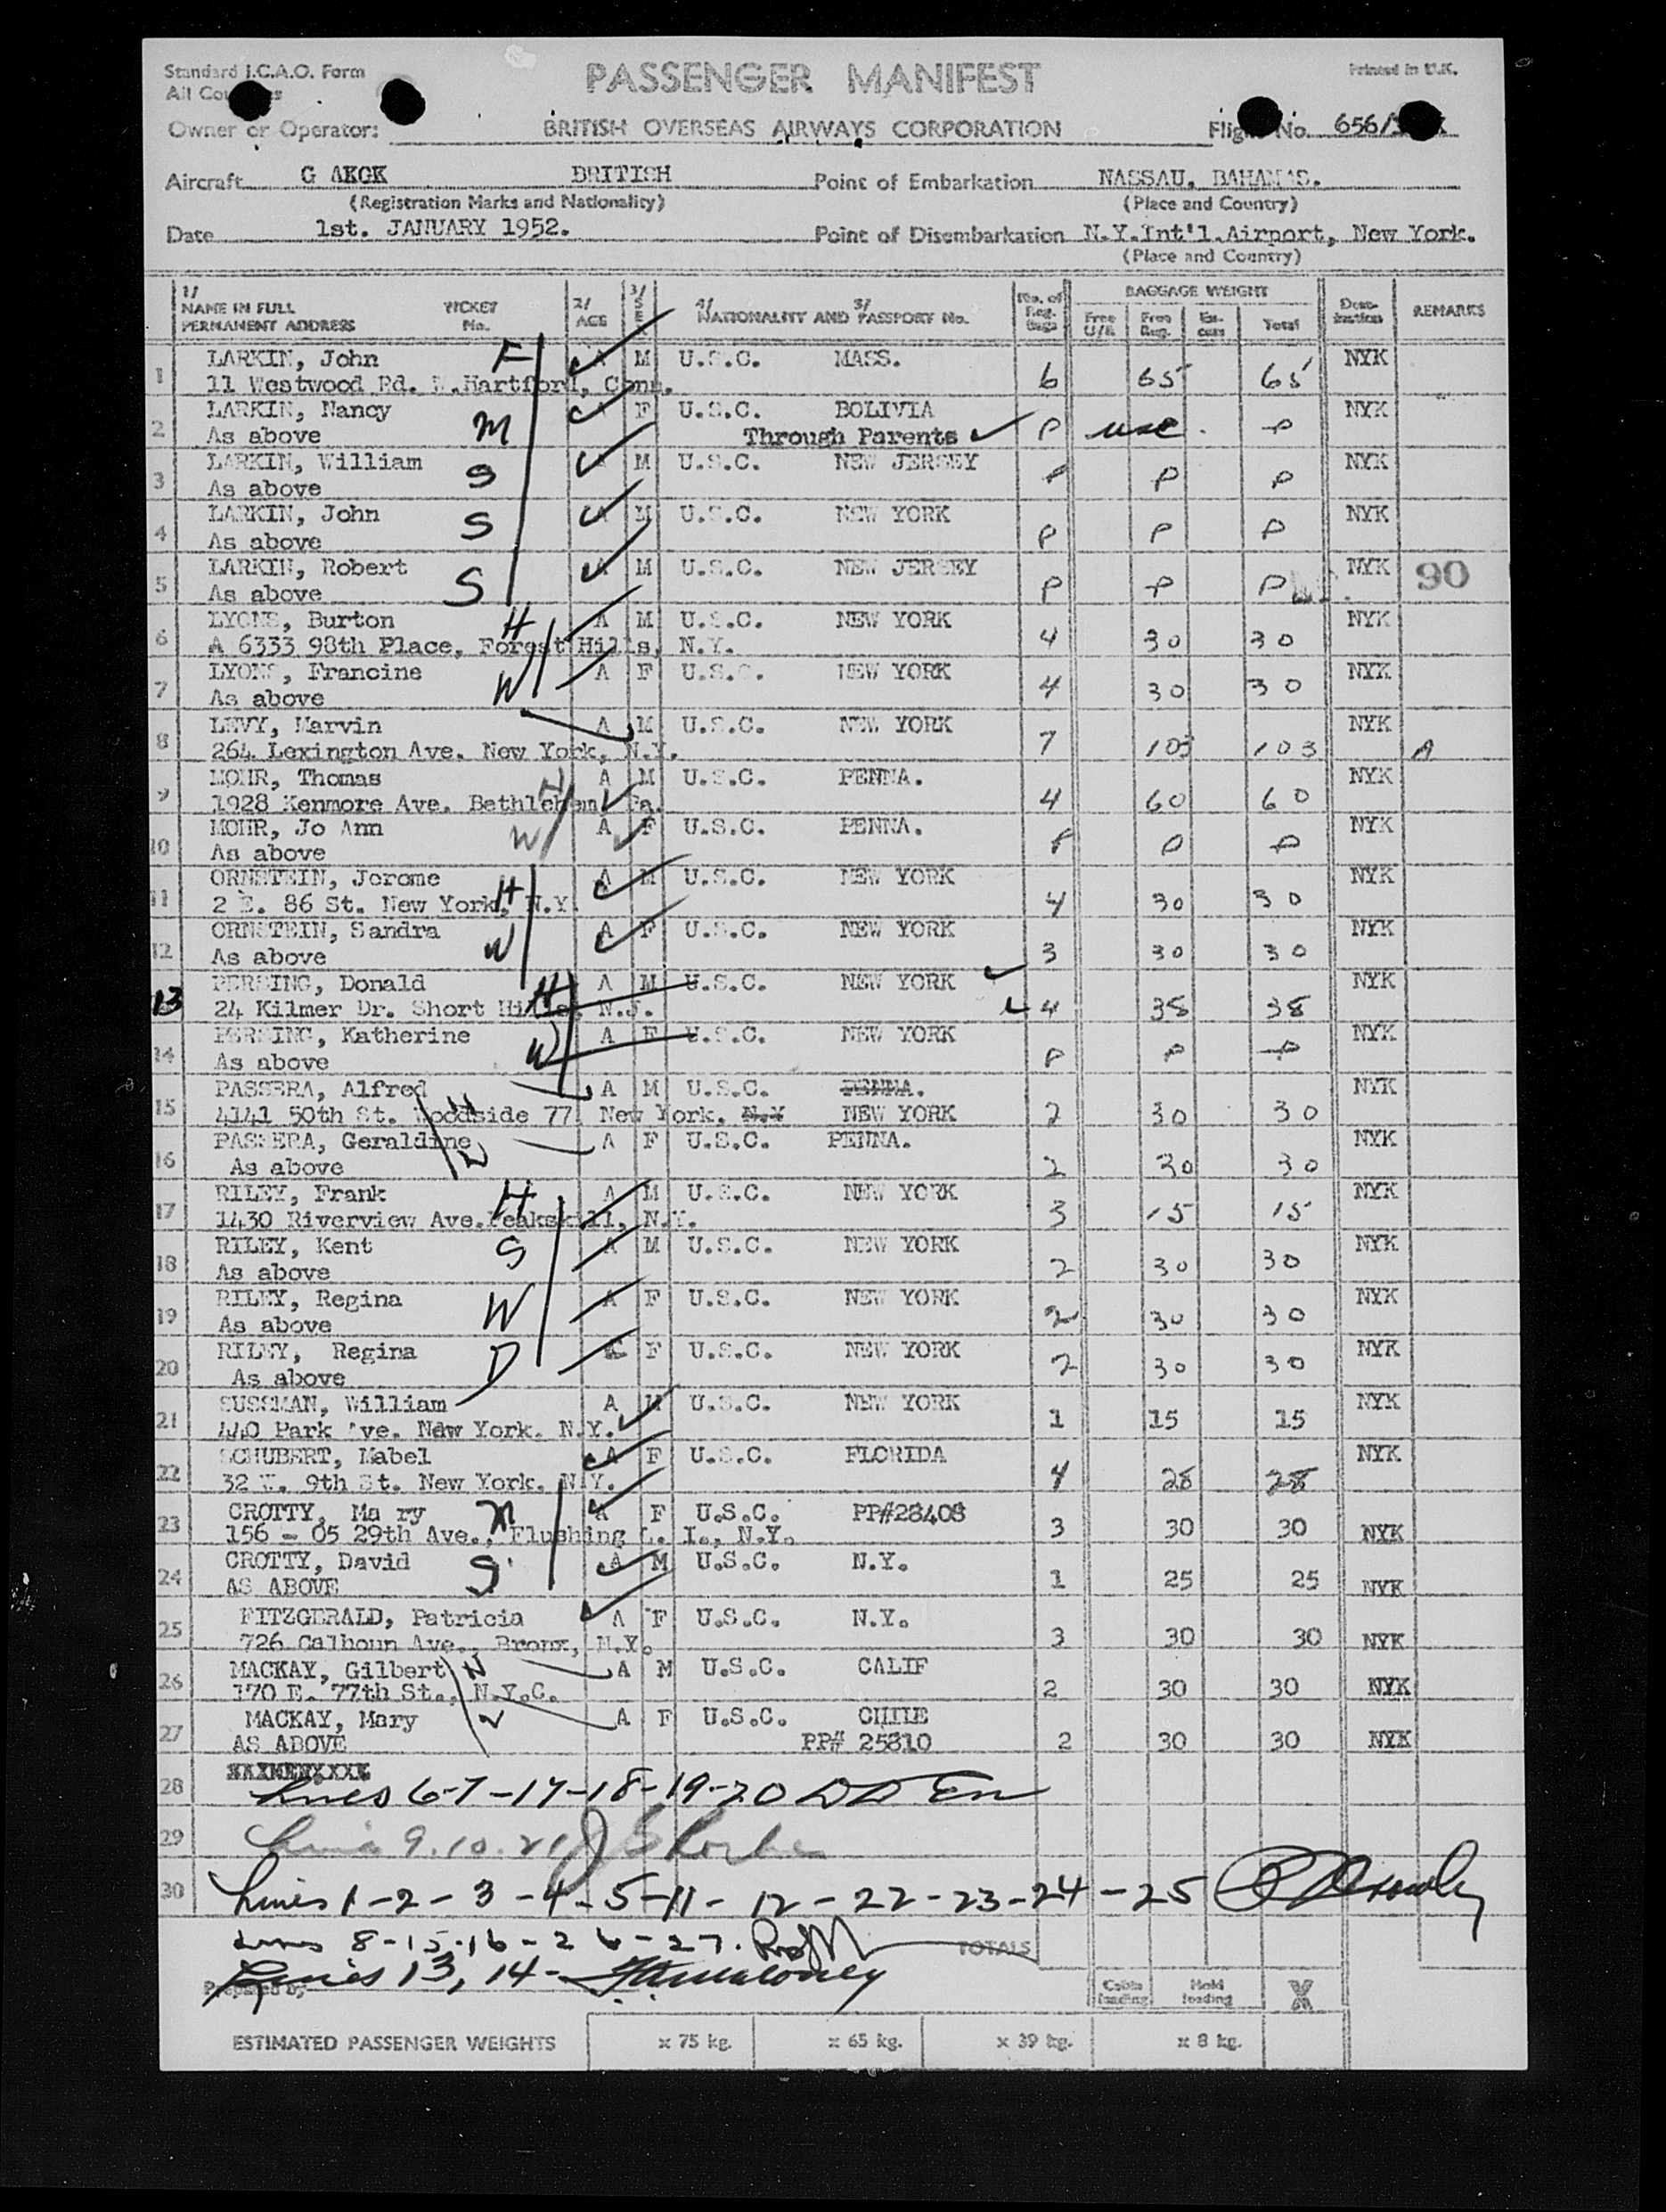 Standard I.C.A.O. Form
PASSENGER MANIFEST
Printed in U.K.
All
Owner or Operator: BRITISH OVERSEAS AIRWAYS CORPORATION Flight No. 656/
Aircraft G AKGK BRITISH Point of Embarkation NASSAU, BAHAMAS.
(Registration Marks and Nationality) (Place and Country)
Date 1st. JANUARY 1952. Point of Disembarkation N.Y.Int'l.Airport, New York.
(Place and Country)
1/ NAME IN FULL PERMANENT ADDRESS TICKET No. 2/ AGE 3/ SEX 4/ NATIONALITY AND 5/ PASSPORT No. No. of Reg. Bags BAGGAGE WEIGHT Free U/R Free Reg. Ex-cess Total Dest-ination REMARKS
1 LARKIN, John F A M U.S.C. MASS. 6 65 65 NYK
11 Westwood Rd. W.Hartford, Conn.
2 LARKIN, Nancy M F U.S.C. BOLIVIA P P NYK
As above Through Parents
3 LARKIN, William S M U.S.C. NEW JERSEY P P P NYK
As above
4 LARKIN, John S A M U.S.C. NEW YORK P P P NYK
As above
5 LARKIN, Robert S A M U.S.C. NEW JERSEY P P P NYK 90
As above
6 LYONS, Burton H A M U.S.C. NEW YORK 4 30 30 NYK
A 6333 98th Place, Forest Hills, N.Y.
7 LYONS, Francine W A F U.S.C. NEW YORK 4 30 30 NYK
As above
8 LEVY, Marvin A M U.S.C. NEW YORK 7 103 103 NYK A
264 Lexington Ave. New York, N.Y.
9 MOHR, Thomas H A M U.S.C. PENNA. 4 60 60 NYK
1928 Kenmore Ave. Bethlehem Pa.
10 MOHR, Jo Ann W A F U.S.C. PENNA. P P P NYK
As above
11 ORNSTEIN, Jerome H A M U.S.C. NEW YORK 4 30 30 NYK
2 E. 86 St. New York, N.Y.
12 ORNSTEIN, Sandra W A F U.S.C. NEW YORK 3 30 30 NYK
As above
13 PERSING, Donald H A M U.S.C. NEW YORK 4 38 38 NYK
24 Kilmer Dr. Short Hills, N.J.
14 PERSING, Katherine W A F U.S.C. NEW YORK P P P NYK
As above
15 PASSERA, Alfred H A M U.S.C. PENNA. NYK
4141 50th St. Woodside 77, New York, N.Y NEW YORK 2 30 30
16 PASSERA, Geraldine W A F U.S.C. PENNA. 2 30 30 NYK
As above
17 RILEY, Frank H A M U.S.C. NEW YORK 3 15 15 NYK
1430 Riverview Ave.Peakskill, N.Y.
18 RILEY, Kent S A M U.S.C. NEW YORK 2 30 30 NYK
As above
19 RILEY, Regina W A F U.S.C. NEW YORK 2 30 30 NYK
As above
20 RILEY, Regina D C F U.S.C. NEW YORK 2 30 30 NYK
As above
21 SUSSMAN, William A M U.S.C. NEW YORK 1 15 15 NYK
440 Park Ave. New York. N.Y.
22 SCHUBERT, Mabel A F U.S.C. FLORIDA 4 28 28 NYK
32 W. 9th St. New York. N.Y.
23 CROTTY, Ma ry M A F U.S.C. PP#28408
156 - 05 29th Ave., Flushing L. I., N.Y. 3 30 30 NYK
24 CROTTY, David S A M U.S.C. N.Y. 1 25 25 NYK
AS ABOVE
25 FITZGERALD, Patricia A F U.S.C. N.Y.
726 Calhoun Ave., Bronx, N.Y. 3 30 30 NYK
26 MACKAY, Gilbert H A M U.S.C. CALIF
170 E. 77th St., N.Y.C. 2 30 30 NYK
27 MACKAY, Mary W A F U.S.C. CHILE
AS ABOVE PP# 25810 2 30 30 NYK
28 Lines 6-7-17-18-19-20
29 Lines 9.10.21
30 Lines 1-2-3-4-5-11-12-22-23-24-25
Lines 8-15-16-26-27. TOTALS
Lines 13, 14-
Prepared by Cabin loading Hold loading X
ESTIMATED PASSENGER WEIGHTS x 75 kg. x 65 kg. x 39 kg. x 8 kg.